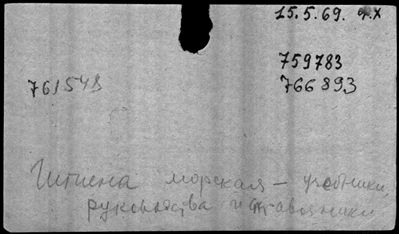 15.5.69. ч.х
759783
766893
761548
Гигиена морская – учебники,
руководства и справочники